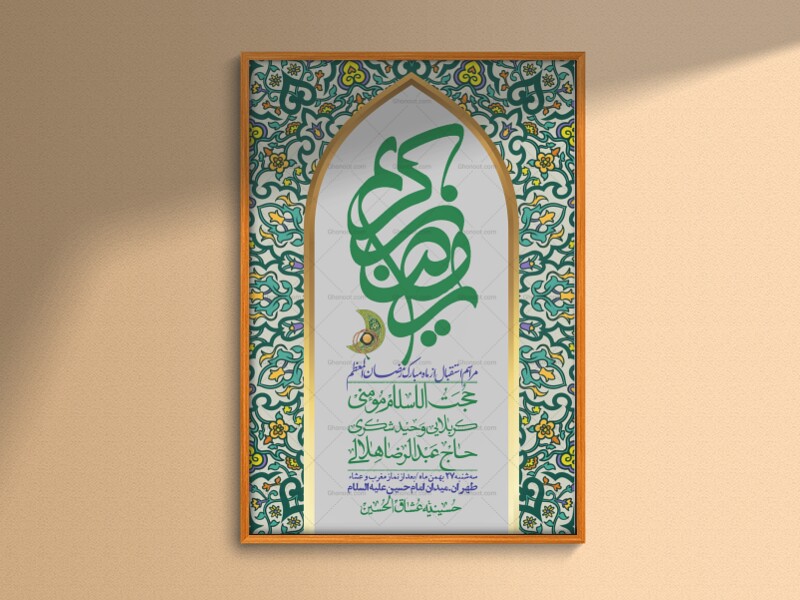 رمضان کریم
مراسم استقبال از ماه مبارک رمضان المعظم
حجت الاسلام مومنی
کربلایی وحید شکری
حاج عبدالرضا هلالی
سه شنبه ۲۷ بهمن ماه / بعد از نماز مغرب و عشاء
طهران میدان امام حسین علیه السلام
حسینیه عشاق الحسین
Ghonoot.com